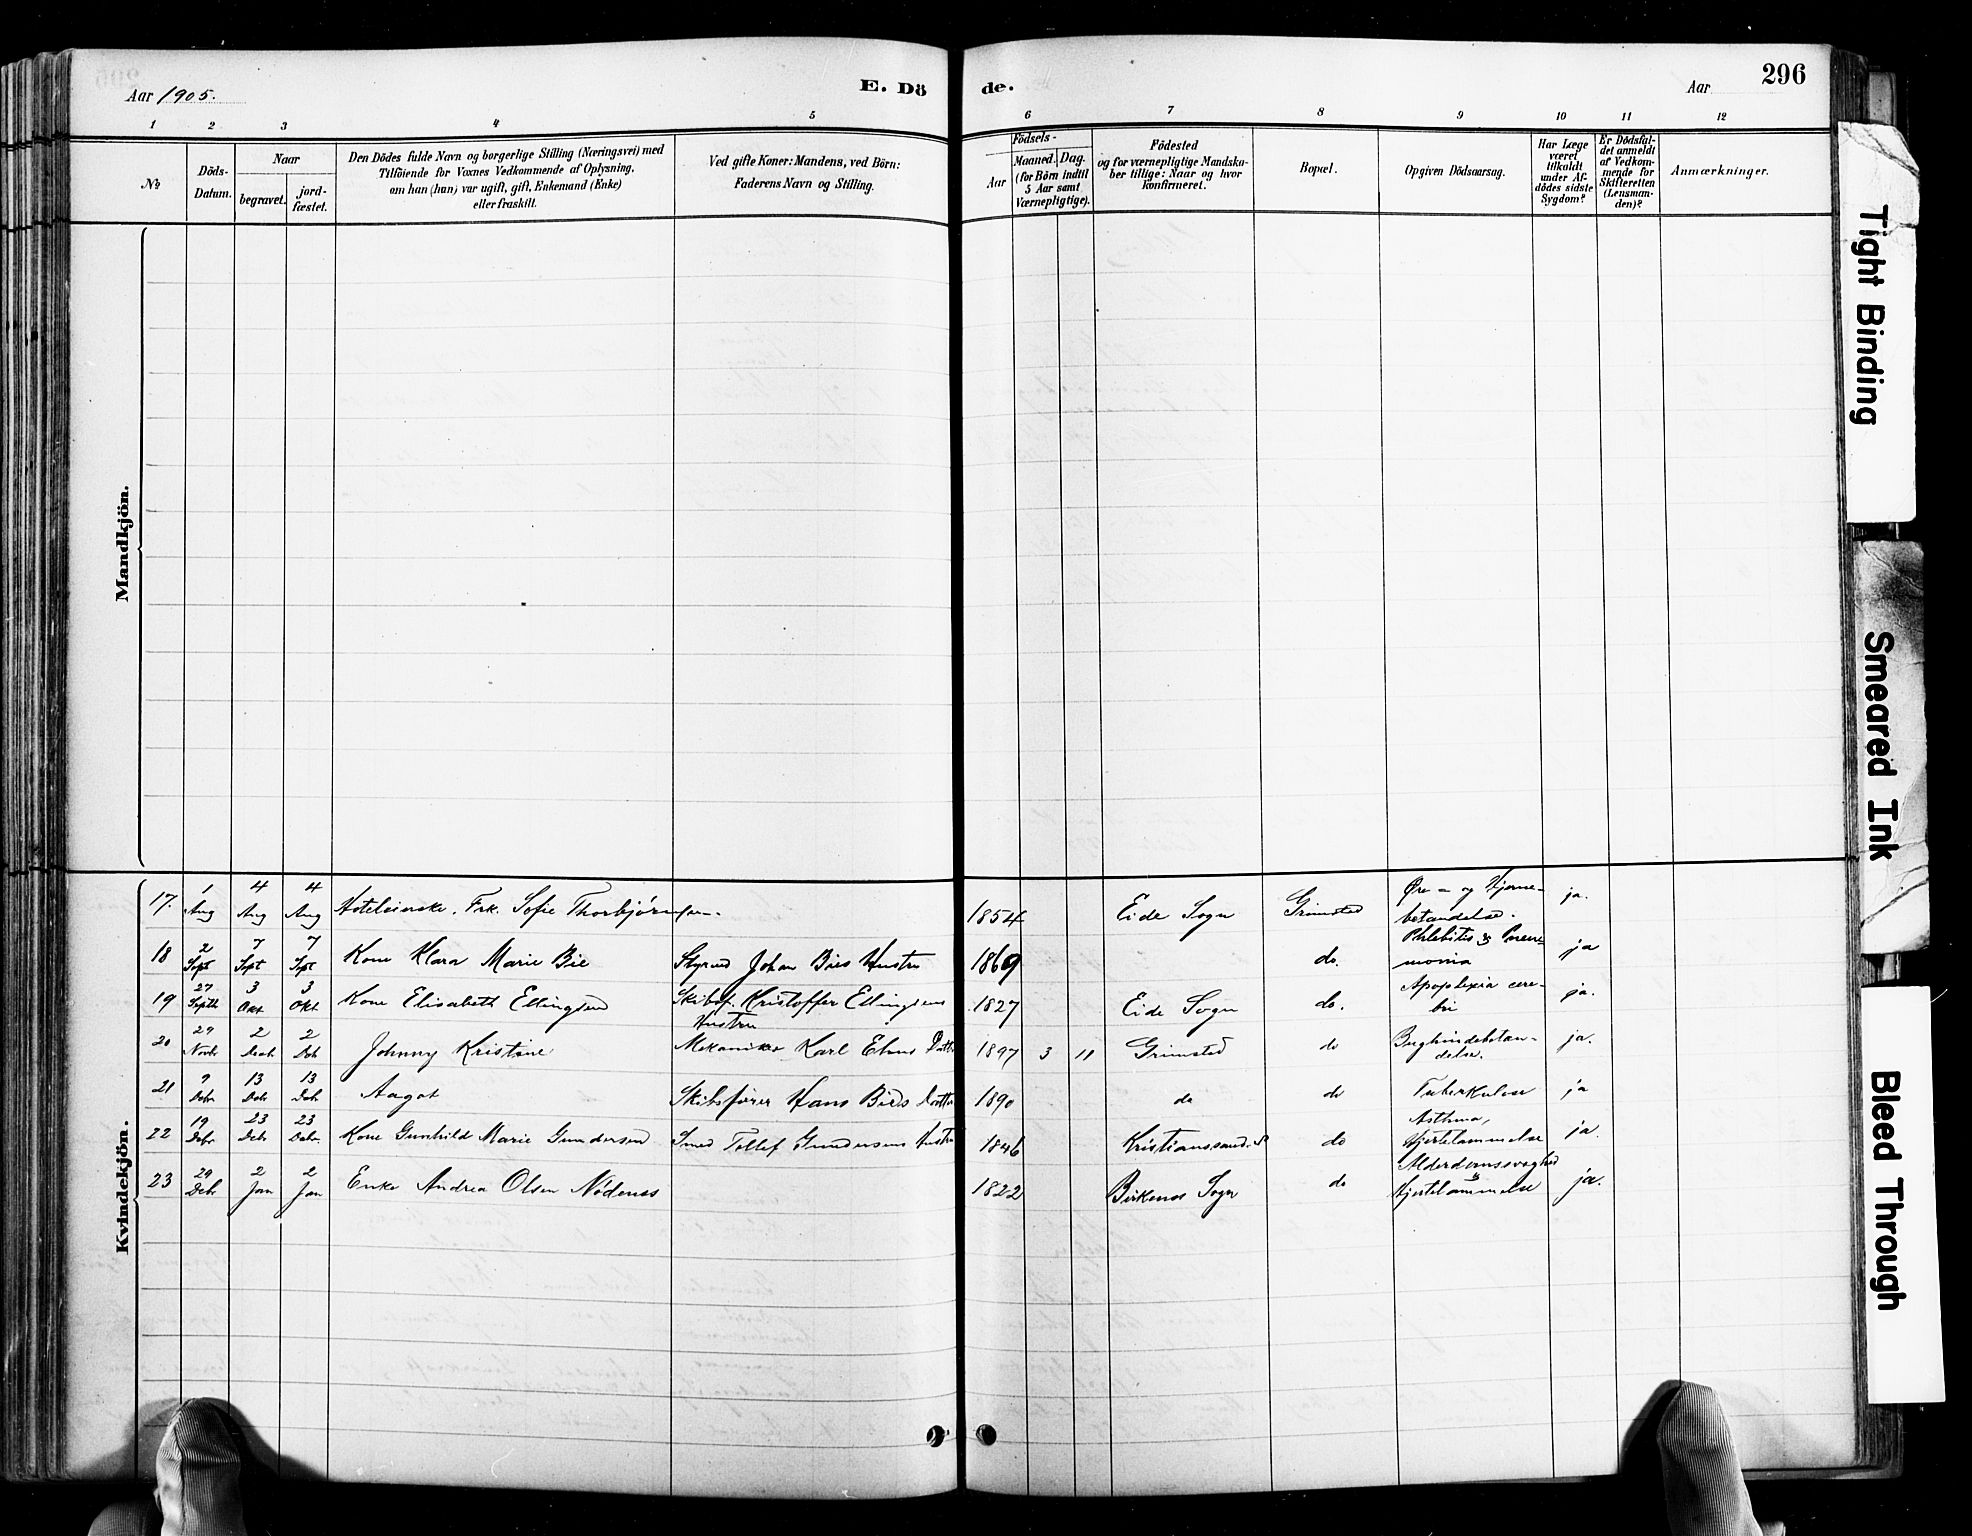 Aar 1905.
E. Dö
de.
Aar
296
1 2 3 4 5 6 7 8 9 10 11 12
No
Döds-
Datum.
Naar
begravet.
jord-
fæstet.
Den Dödes fulde Navn og borgerlige Stilling (Næringsvei) med
Tilföiende for Voxnes Vedkommende af Oplysning,
om han (hun) var ugift, gift, Enkemand (Enke)
eller fraskilt.
Ved gifte Koner: Mandens, ved Börn:
Faderens Navn og Stilling.
Födsels-
Aar
Maaned. Dag.
(for Börn indtil
5 Aar samt
Værnepligtige).
Födested
og for værnepligtige Mandska-
ber tillige: Naar og hvor
konfirmeret.
Bopæl.
Opgiven Dödsaarsag.
Har Læge
været
tilkaldt
under Af-
dödes sidste
Sygdom?
Er Dödsfal-
det anmeldt
af Vedkom-
mende for
Skifteretten
(Lensman-
den)?
Anmærkninger.
Mandkjön.
Kvindekjön.
17. 1 Aug 4 Aug 4 Aug Frk. Sofie Thorbjørnsen. 1854 Eide Sogn Grimsted Øre- og Hjerne-
betændelse. ja.
18 2 Sept 7 Sept 7 Sept Kone Klara Marie Bie Styrmd Johan Bies Hustru 1869 do. Phlebitis & Pneu-
monia ja
19 27 Septb 3 Okt 3 Okt Kone Elisabeth Ellingsen Skibsf. Kristoffer Ellingsens
Hustru 1827 Eide Sogn do. Apoplexia cere-
bri ja.
20 29 Novbr 2 Decb 2 Deb Johnny Kristine Mekaniker Karl Datter 1897 3 11 Grimsted do Bughindebetæn-
delse. ja.
21 9 Debr 13 Debr 13 Deb Aagot Skibsfører Hans Bies Datter 1890 do do Tuberkulose ja
22 19 Debr 23 Debr 23 Debr Kone Gunhild Marie Gundersen Smed Tellef Gundersens Hustru 1846 Kristianssand. do Asthma,
Hjertelammelse ja.
23 29 Debr 2 Jan 2 Jan Enke Andrea Olsen Nødenes 1822 Birkenes Sogn do Alderdomssvaghed
& Hjertelammelse ja.
Tight Binding
Smeared Ink
Bleed Through